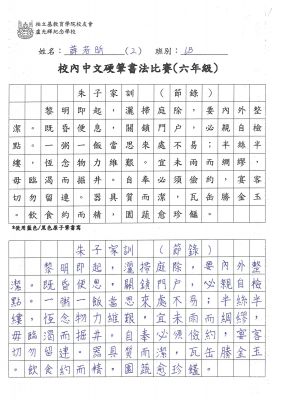 柏立基教育學院校友會
盧光輝紀念學校
姓名：薛 (2) 班別：6B
校內中文硬筆書法比賽(六年級)
朱子家訓(節錄)
黎明即起，灑掃庭除，要內外整
潔。既昏便息，關鎖門戶，必親自檢
點。一粥一飯當思來處不易；半絲半
縷，恆念物力維艱。宜未雨而綢繆，
毋臨渴而掘井。自奉必須儉約，宴客
切勿留連。器具質而潔，瓦缶勝金玉
。飲食約而精，園蔬愈珍饈。
*使用藍色/黑色原子筆書寫
朱子家訓(節錄)
黎明即起，灑掃庭除，要內外整
潔。既昏便息，關鎖門戶，必親自檢
點。一粥一飯當思來處不易；半絲半
縷，恆念物力維艱。宜未雨而綢繆，
毋臨渴而掘井。自奉必須儉約，宴客
切勿留連。器具質而潔，瓦缶勝金玉
。飲食約而精，園蔬愈珍饈。